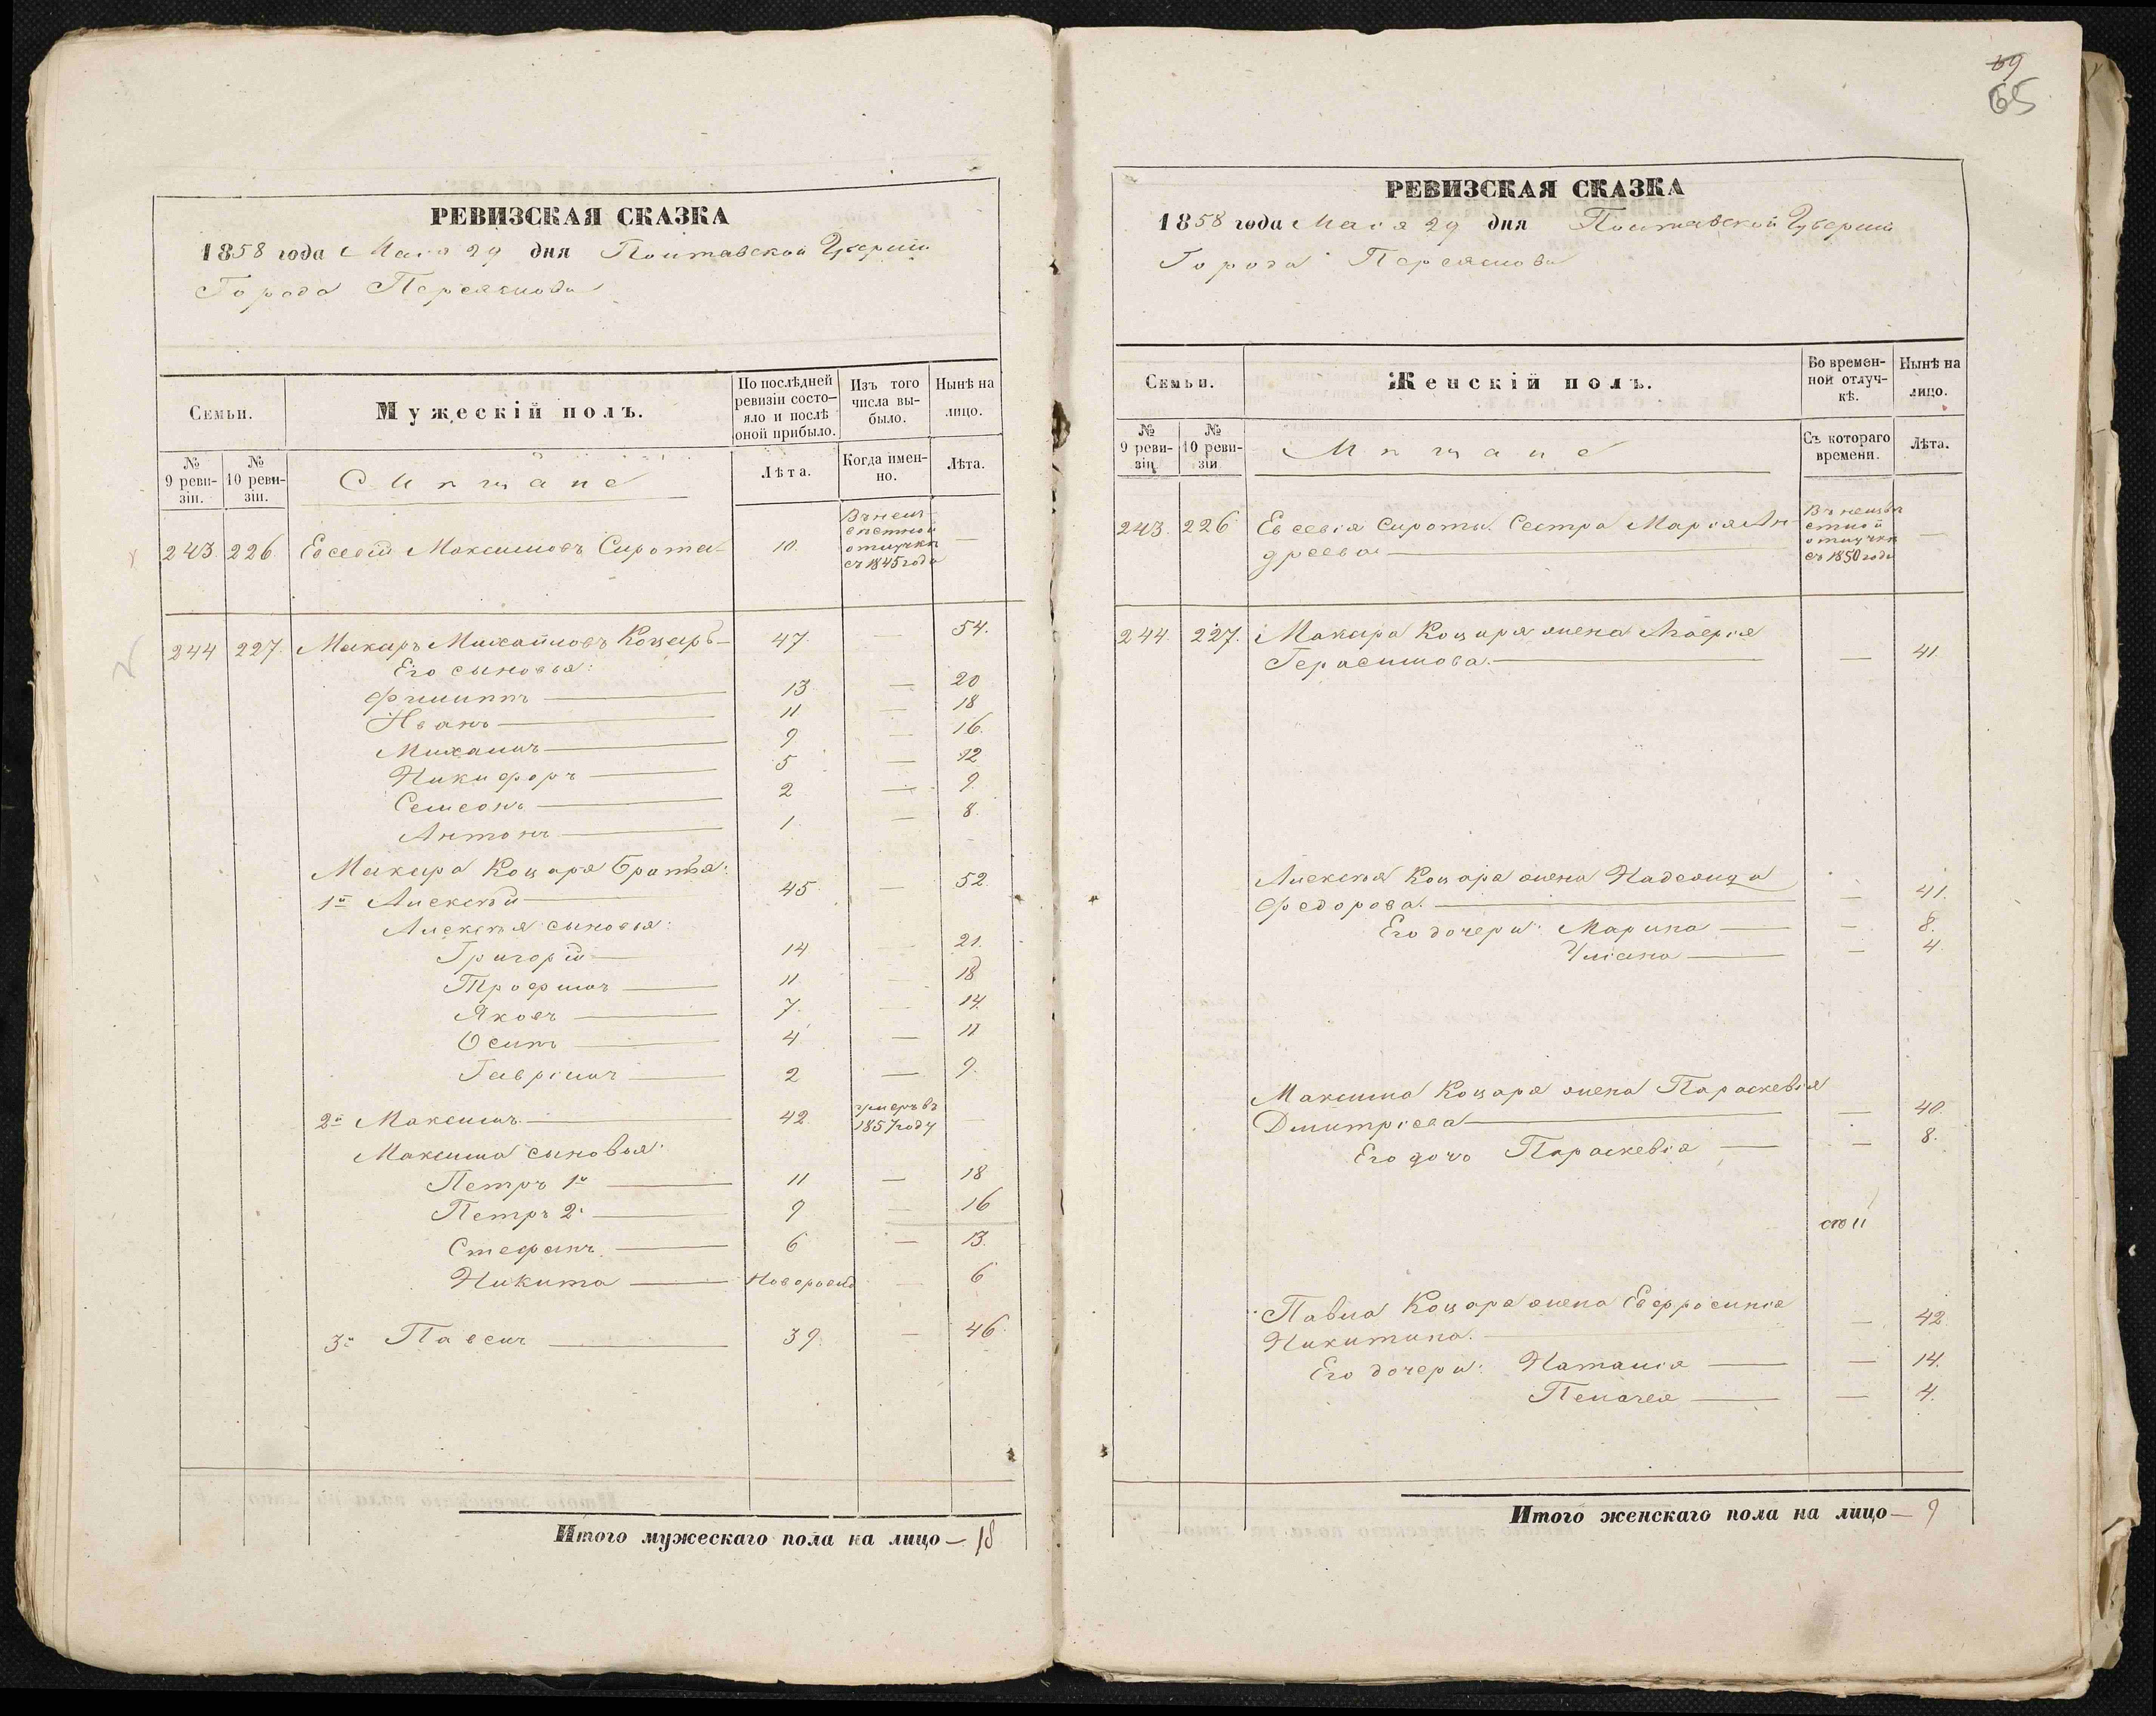 РЕВИЗСКАЯ СКАЗКА
1858 года Мая 29 дня Полтавской Губерніи
Города Переяслова
Семьи.
Мужескій полъ.
По послѣдней ревизіи состояло и послѣ оной прибыло.
Изъ того числа выбыло.
Нынѣ на лицо.
№ 9 ревизіи.
№ 10 ревизіи.
Мѣщане
Лѣта.
Когда именно.
Лѣта.
243. 226. Евсевій Максимовъ Сирота 10. Въ неизвѣстной отлучкѣ съ 1845 года —
244 227. Макаръ Михайловъ Коцарь — 47. — 54.
Его сыновья:
Филиппъ — 13 — 20
Иванъ — 11 — 18
Михаилъ — 9 — 16.
Никифоръ — 5 — 12
Семеонъ — 2 — 9.
Антонъ — 1. — 8.
Макара Коцаря братья:
1й Алексѣй — 45 — 52.
Алексѣя сыновья:
Григорій — 14 — 21.
Трофимъ — 11 — 18
Яковъ — 7. — 14.
Осипъ — 4 — 11
Гавріилъ — 2 — 9.
2й Максимъ — 42. умеръ въ 1857 году —
Максима сыновья:
Петръ 1й — 11 — 18
Петръ 2й — 9 — 16
Стефанъ — 6 — 13.
Никита — Новорожд — 6
3й Павелъ — 39. — 46.
Итого мужескаго пола на лицо — 18
69
65
РЕВИЗСКАЯ СКАЗКА
1858 года Мая 29 дня Полтавской Губерніи
Города Переяслова
Семьи.
Женскій полъ.
Во временной отлучкѣ.
Нынѣ на лицо.
№ 9 ревизіи
№ 10 ревизіи
Мѣщане
Съ котораго времени.
Лѣта.
243. 226. Евсевія Сироты Сестра Марія Ан-
дреева — Въ неизвѣстной отлучкѣ съ 1850 года —
244. 227. Макара Коцаря жена
Герасимова. — — 41.
Алексѣя Коцаря жена Надежда
Федорова. — — 41.
Его дочери: Марина — — 8.
Уліана — — 4.
Максима Коцаря жена Параскевія
Дмитріева — — 40.
Его дочь Параскевія — — 8.
Павла Коцаря жена Евфросинія
Никитина. — — 42
Его дочери: Наталія — — 14.
Пелагея — — 4.
Итого женскаго пола на лицо — 9